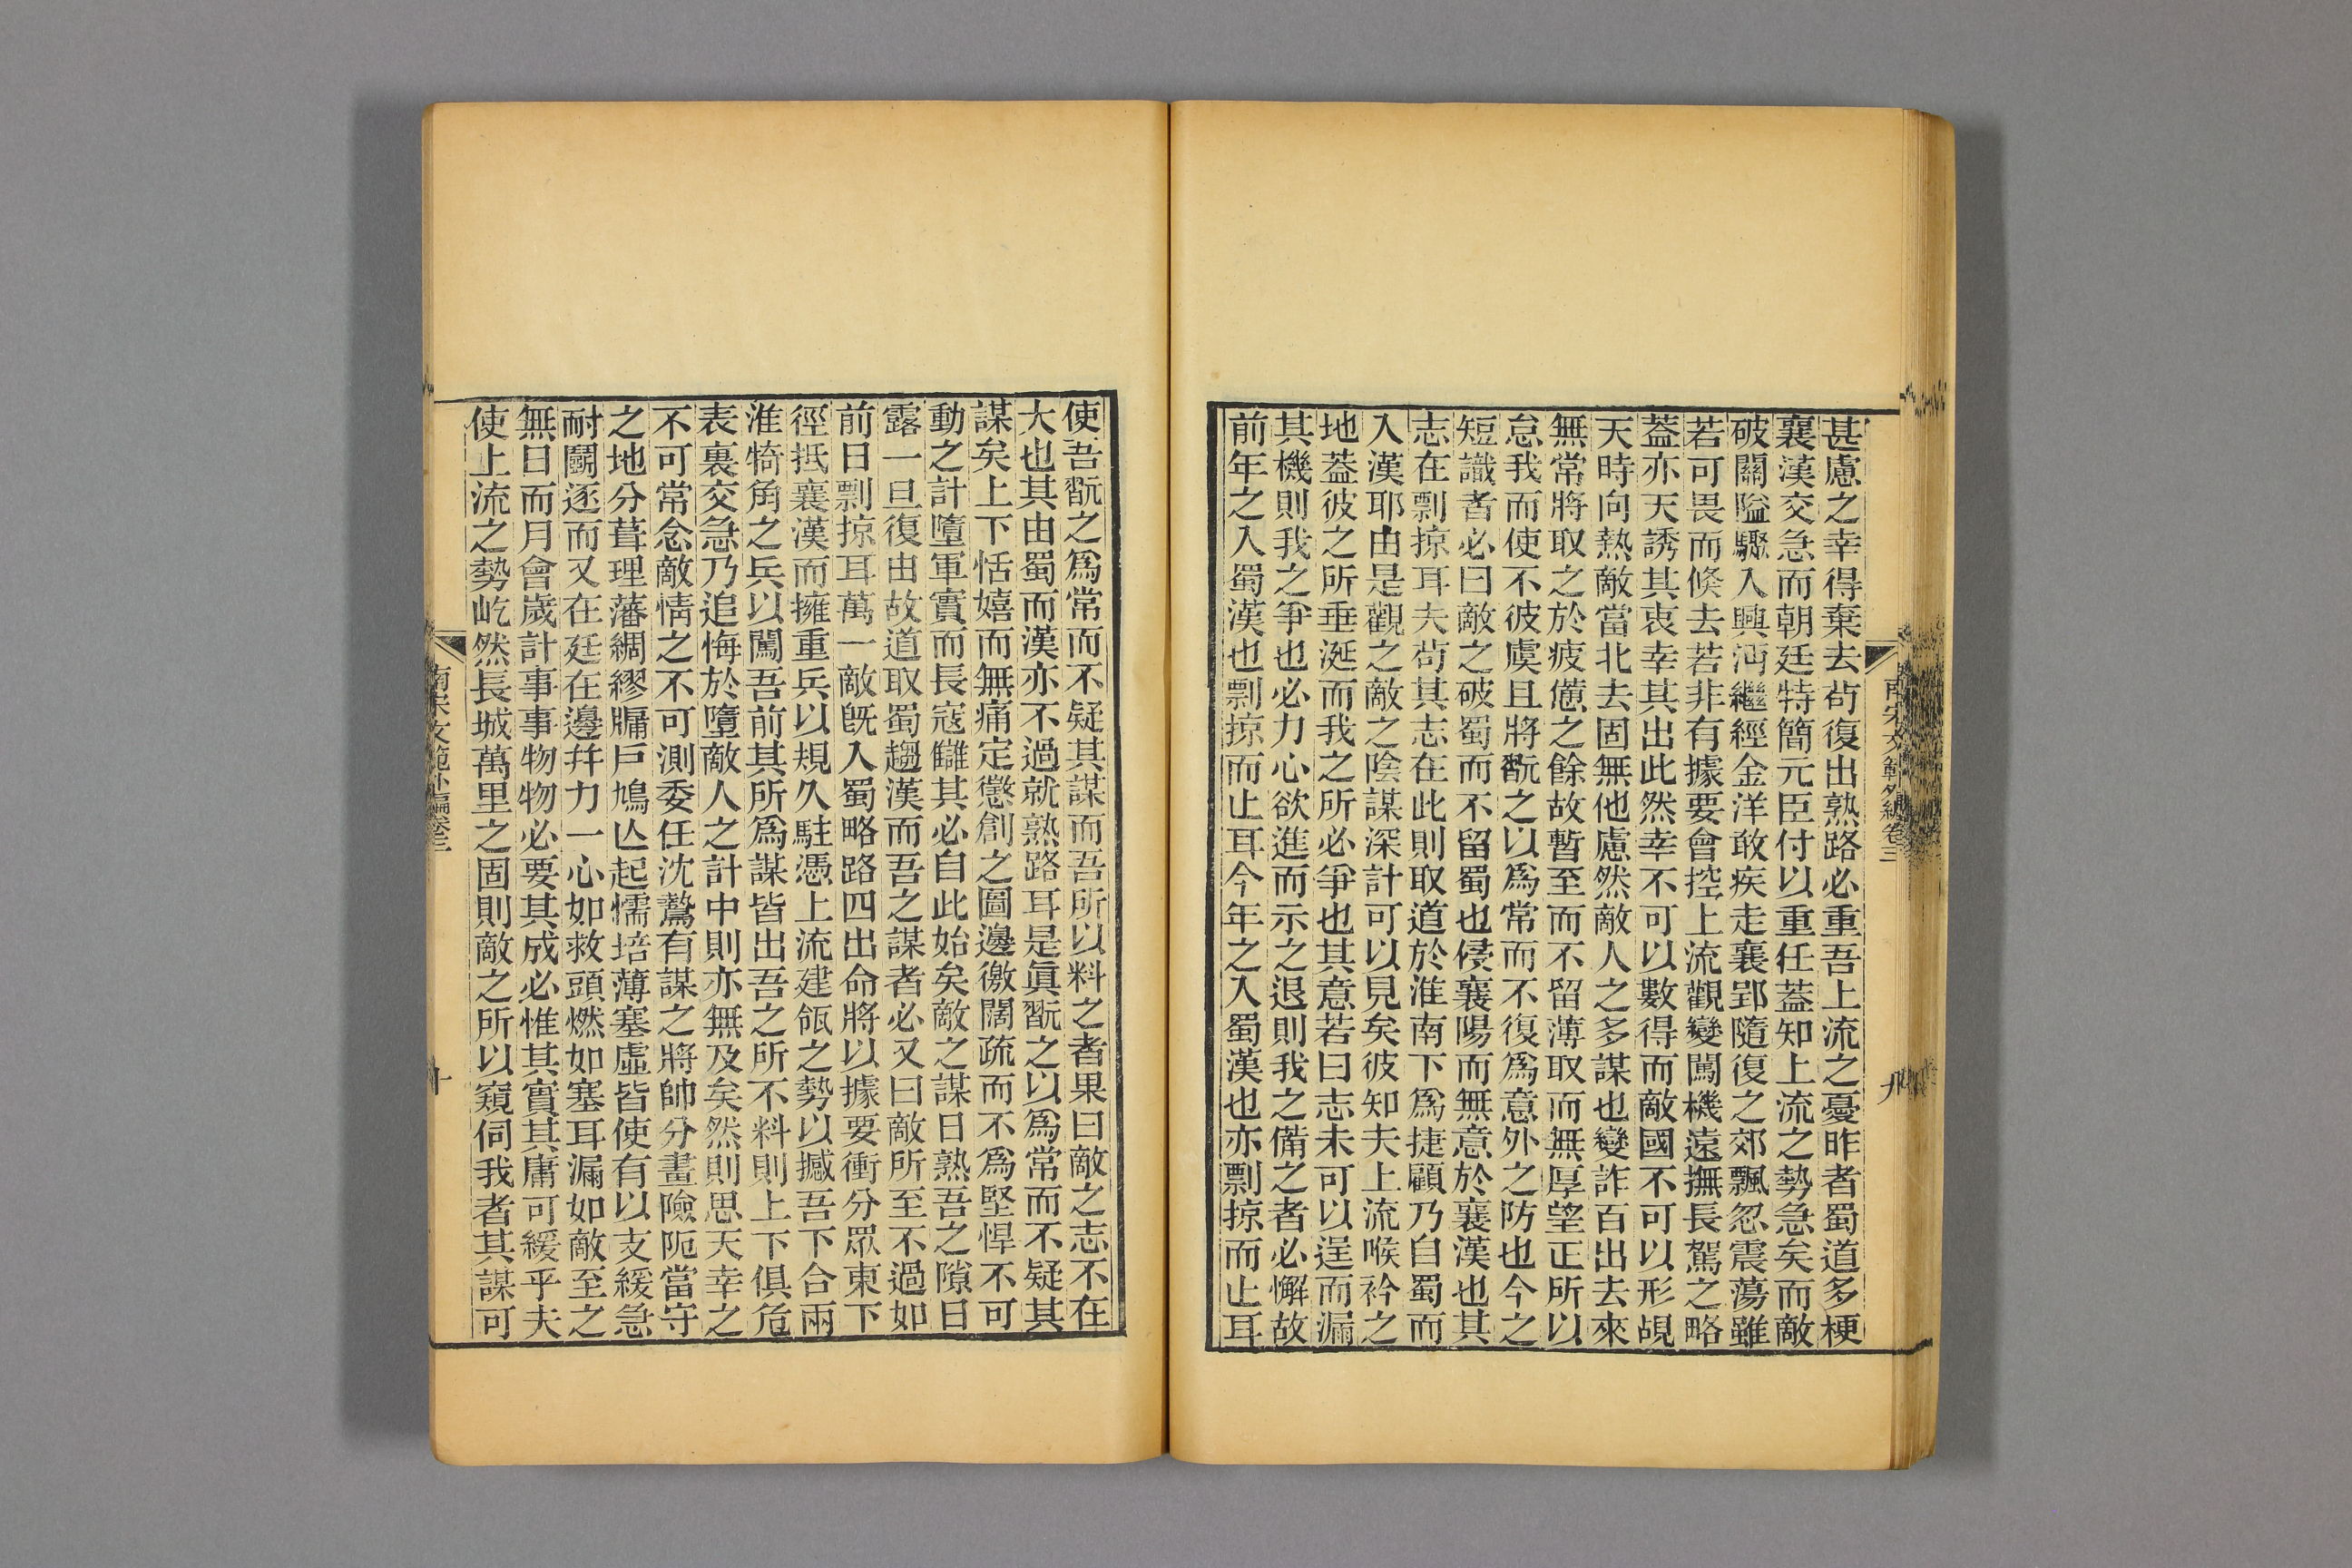 甚慮之幸得棄去苟復出熟路必重吾上流之憂昨者蜀道多梗
襄漢交急而朝廷特簡元臣付以重任葢知上流之勢急矣而敵
破關隘驟入興沔繼經金洋敢疾走襄郢隨復之郊飄忽震蕩雖
若可畏而倐去若非有據要會控上流觀變闖機遠撫長駕之略
葢亦天誘其衷幸其出此然幸不可以數得而敵國不可以形覘
天時向熱敵當北去固無他慮然敵人之多謀也變詐百出去來
無常將取之於疲憊之餘故暫至而不留薄取而無厚望正所以
怠我而使不彼虞且將翫之以爲常而不復爲意外之防也今之
短識者必曰敵之破蜀而不留蜀也侵襄陽而無意於襄漢也其
志在剽掠耳夫苟其志在此則取道於淮南下爲捷顧乃自蜀而
入漢耶由是觀之敵之陰謀深計可以見矣彼知夫上流喉衿之
地葢彼之所垂涎而我之所必爭也其意若曰志未可以逞而漏
其機則我之爭也必力心欲進而示之退則我之備之者必懈故
前年之入蜀漢也剽掠而止耳今年之入蜀漢也亦剽掠而止耳
南宋文範外編卷三
九
使吾翫之爲常而不疑其謀而吾所以料之者果曰敵之志不在
大也其由蜀而漢亦不過就熟路耳是眞翫之以爲常而不疑其
謀矣上下恬嬉而無痛定懲創之圖邊徼闊疏而不爲堅悍不可
動之計墮軍實而長寇讎其必自此始矣敵之謀日熟吾之隙日
露一旦復由故道取蜀趨漢而吾之謀者必又曰敵所至不過如
前日剽掠耳萬一敵旣入蜀略路四出命將以據要衝分眾東下
徑抵襄漢而擁重兵以規久駐憑上流建瓴之勢以撼吾下合兩
淮犄角之兵以闖吾前其所爲謀皆出吾之所不料則上下俱危
表裏交急乃追悔於墮敵人之計中則亦無及矣然則思天幸之
不可常念敵情之不可測委任沈鷙有謀之將帥分畫險阨當守
之地分葺理藩綢繆牖戶鳩亾起懦培薄塞虛皆使有以支緩急
耐鬭逐而又在廷在邊幷力一心如救頭燃如塞耳漏如敵至之
無日而月會歲計事事物物必要其成必惟其實其庸可緩乎夫
使上流之勢屹然長城萬里之固則敵之所以窺伺我者其謀可
南宋文範外編卷三
十